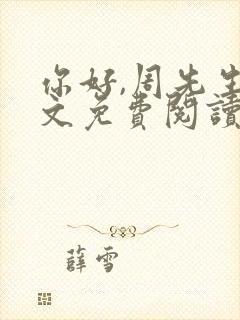 你好,周先生
文免费閱讀
薛雪